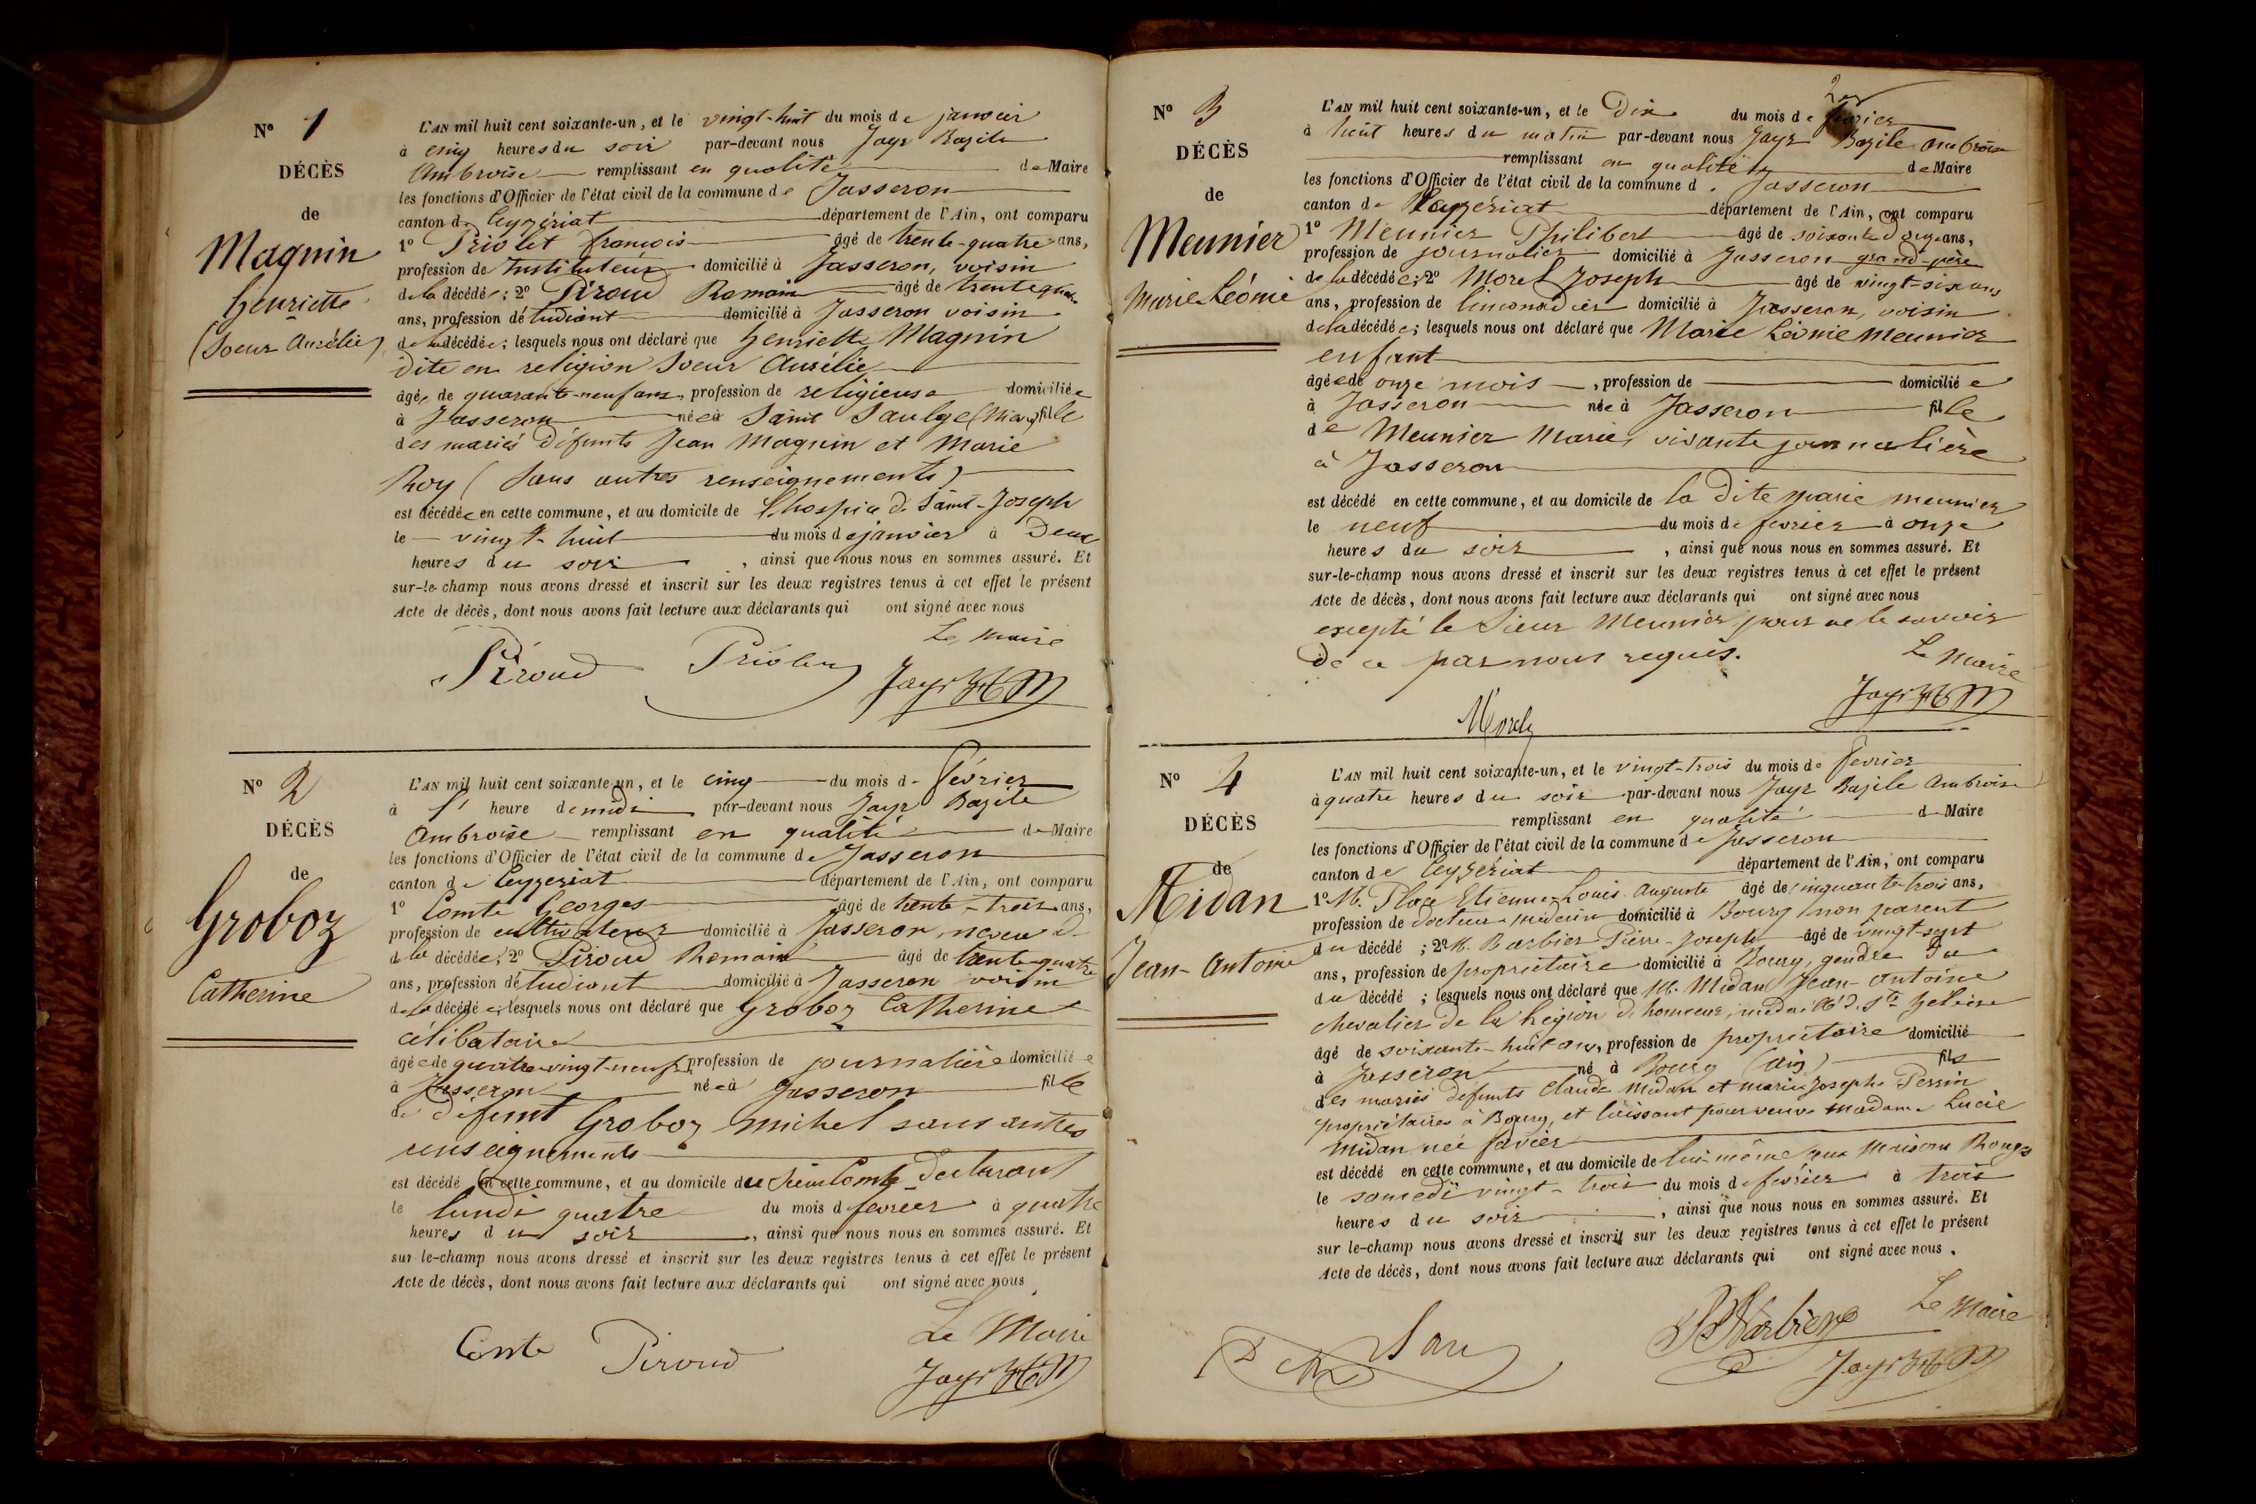 N° 1
DÉCÈS
de
Magnin
henriette
(Soeur Aurélie)
L'AN mil huit cent soixante-un, et le vingt-huit du mois de janvier
à cinq heures du soir par-devant nous Jayr Bazile
Ambroise remplissant en qualité de Maire
les fonctions d'Officier de l'état civil de la commune de Jasseron
canton de Ceyzériat département de l'Ain, ont comparu
1° Priolet françois âgé de trente-quatre ans,
profession de Instituteur domicilié à Jasseron, voisin
de la décédée; 2° Piroud Romain âgé de trente quatre
ans, profession détudiant domicilié à Jasseron voisin
de la décédée; lesquels nous ont déclaré que henriette Magnin
dite en religion Soeur Aurélie
âgée de quarante-neuf ans, profession de religieuse domiciliée
à Jasseron née à Saint Saulge fille
des mariés défunts Jean Magnin et Marie
Roy (Sans autres renseignements)
est décédée en cette commune, et au domicile de l'hospice de Saint-Joseph
le vingt-huit du mois de janvier à Deux
heures du soir, ainsi que nous nous en sommes assuré. Et
sur-le-champ nous avons dressé et inscrit sur les deux registres tenus à cet effet le présent
Acte de décès, dont nous avons fait lecture aux déclarants qui ont signé avec nous
Le Maire
Piroud Priolet Jayr
N° 2
DÉCÈS
de
Groboz
Catherine
L'AN mil huit cent soixante-un, et le cinq du mois de Février
à 1 heure de midi par-devant nous Jayr Bazile
Ambroise remplissant en qualité de Maire
les fonctions d'Officier de l'état civil de la commune de Jasseron
canton de Ceyzeriat département de l'Ain, ont comparu
1° Comte Georges âgé de trente-trois ans,
profession de cultivateur domicilié à Jasseron, neveu d
de la décédée; 2° Piroud Romain âgé de trente-quatre
ans, profession détudiant domicilié à Jasseron voisin
de la décédée; lesquels nous ont déclaré que Groboz Catherine
célibataire
âgée de quatre-vingt-neuf, profession de journalière domiciliée
à Jasseron née à Jasseron fille
de défunt Groboz Michel sans autres
renseignements
est décédé en cette commune, et au domicile du Sieur Comte Déclarant
le lundi quatre du mois de fevrier à quatre
heures du soir, ainsi que nous nous en sommes assuré. Et
sur-le-champ nous avons dressé et inscrit sur les deux registres tenus à cet effet le présent
Acte de décès, dont nous avons fait lecture aux déclarants qui ont signé avec nous
Le Maire
Comte Piroud Jayr
2
N° 3
DÉCÈS
de
Meunier
Marie Léonie
L'AN mil huit cent soixante-un, et le Dix du mois de fevrier
à huit heures du matin par-devant nous Jayr Bazile Ambroise
remplissant en qualité de Maire
les fonctions d'Officier de l'état civil de la commune de Jasseron
canton de Ceyzériat département de l'Ain, ont comparu
1° Meunier Philibert âgé de soixante douze ans,
profession de journalier domicilié à Jasseron grand-père
de la décédée; 2° Morel Joseph âgé de vingt-six ans
ans, profession de limonadier domicilié à Jasseron, voisin
de la décédée; lesquels nous ont déclaré que Marie Léonie Meunier
enfant
âgée de onze mois, profession de domiciliée
à Jasseron née à Jasseron fille
de Meunier Marie, vivante journalière
à Jasseron
est décédé en cette commune, et au domicile de la dite Marie Meunier
le neuf du mois de fevrier à onze
heures du soir, ainsi que nous nous en sommes assuré. Et
sur-le-champ nous avons dressé et inscrit sur les deux registres tenus à cet effet le présent
Acte de décès, dont nous avons fait lecture aux déclarants qui ont signé avec nous
excepté le Sieur Meunier pour ne le savoir
de ce par nous requis.
Le Maire
Jayr
Morel
N° 4
DÉCÈS
de
Midan
Jean-Antoine
L'AN mil huit cent soixante-un, et le vingt-trois du mois de fevrier
à quatre heures du soir par-devant nous Jayr Bazile Ambroise
remplissant en qualité de Maire
les fonctions d'Officier de l'état civil de la commune de Jasseron
canton de Ceyzériat département de l'Ain, ont comparu
1° M. Place Etienne-Louis Auguste âgé de cinquante-trois ans,
profession de docteur-médecin domicilié à Bourg non parent
du décédé; 2° M. Barbier Pierre-Joseph âgé de vingt-sept
ans, profession de propriétaire domicilié à Bourg, gendre du
du décédé; lesquels nous ont déclaré que M. Midan Jean-Antoine
chevalier de la Légion d'honneur, médaillé de Ste Hélène
âgé de soixante-huit ans, profession de propriétaire domicilié
à Jasseron né à Bourg (Ain) fils
des mariés defunts Claude Midan et Marie Josephe Perrin
propriétaires à Bourg, et laissant pour veuve madame Lucie
Midan née favier
est décédé en cette commune, et au domicile de lui-même aux Maisons Rouges
le samedi vingt-trois du mois de fevrier à trois
heures du soir, ainsi que nous nous en sommes assuré. Et
sur le-champ nous avons dressé et inscrit sur les deux registres tenus à cet effet le présent
Acte de décès, dont nous avons fait lecture aux déclarants qui ont signé avec nous.
Le Maire
Barbier Jayr